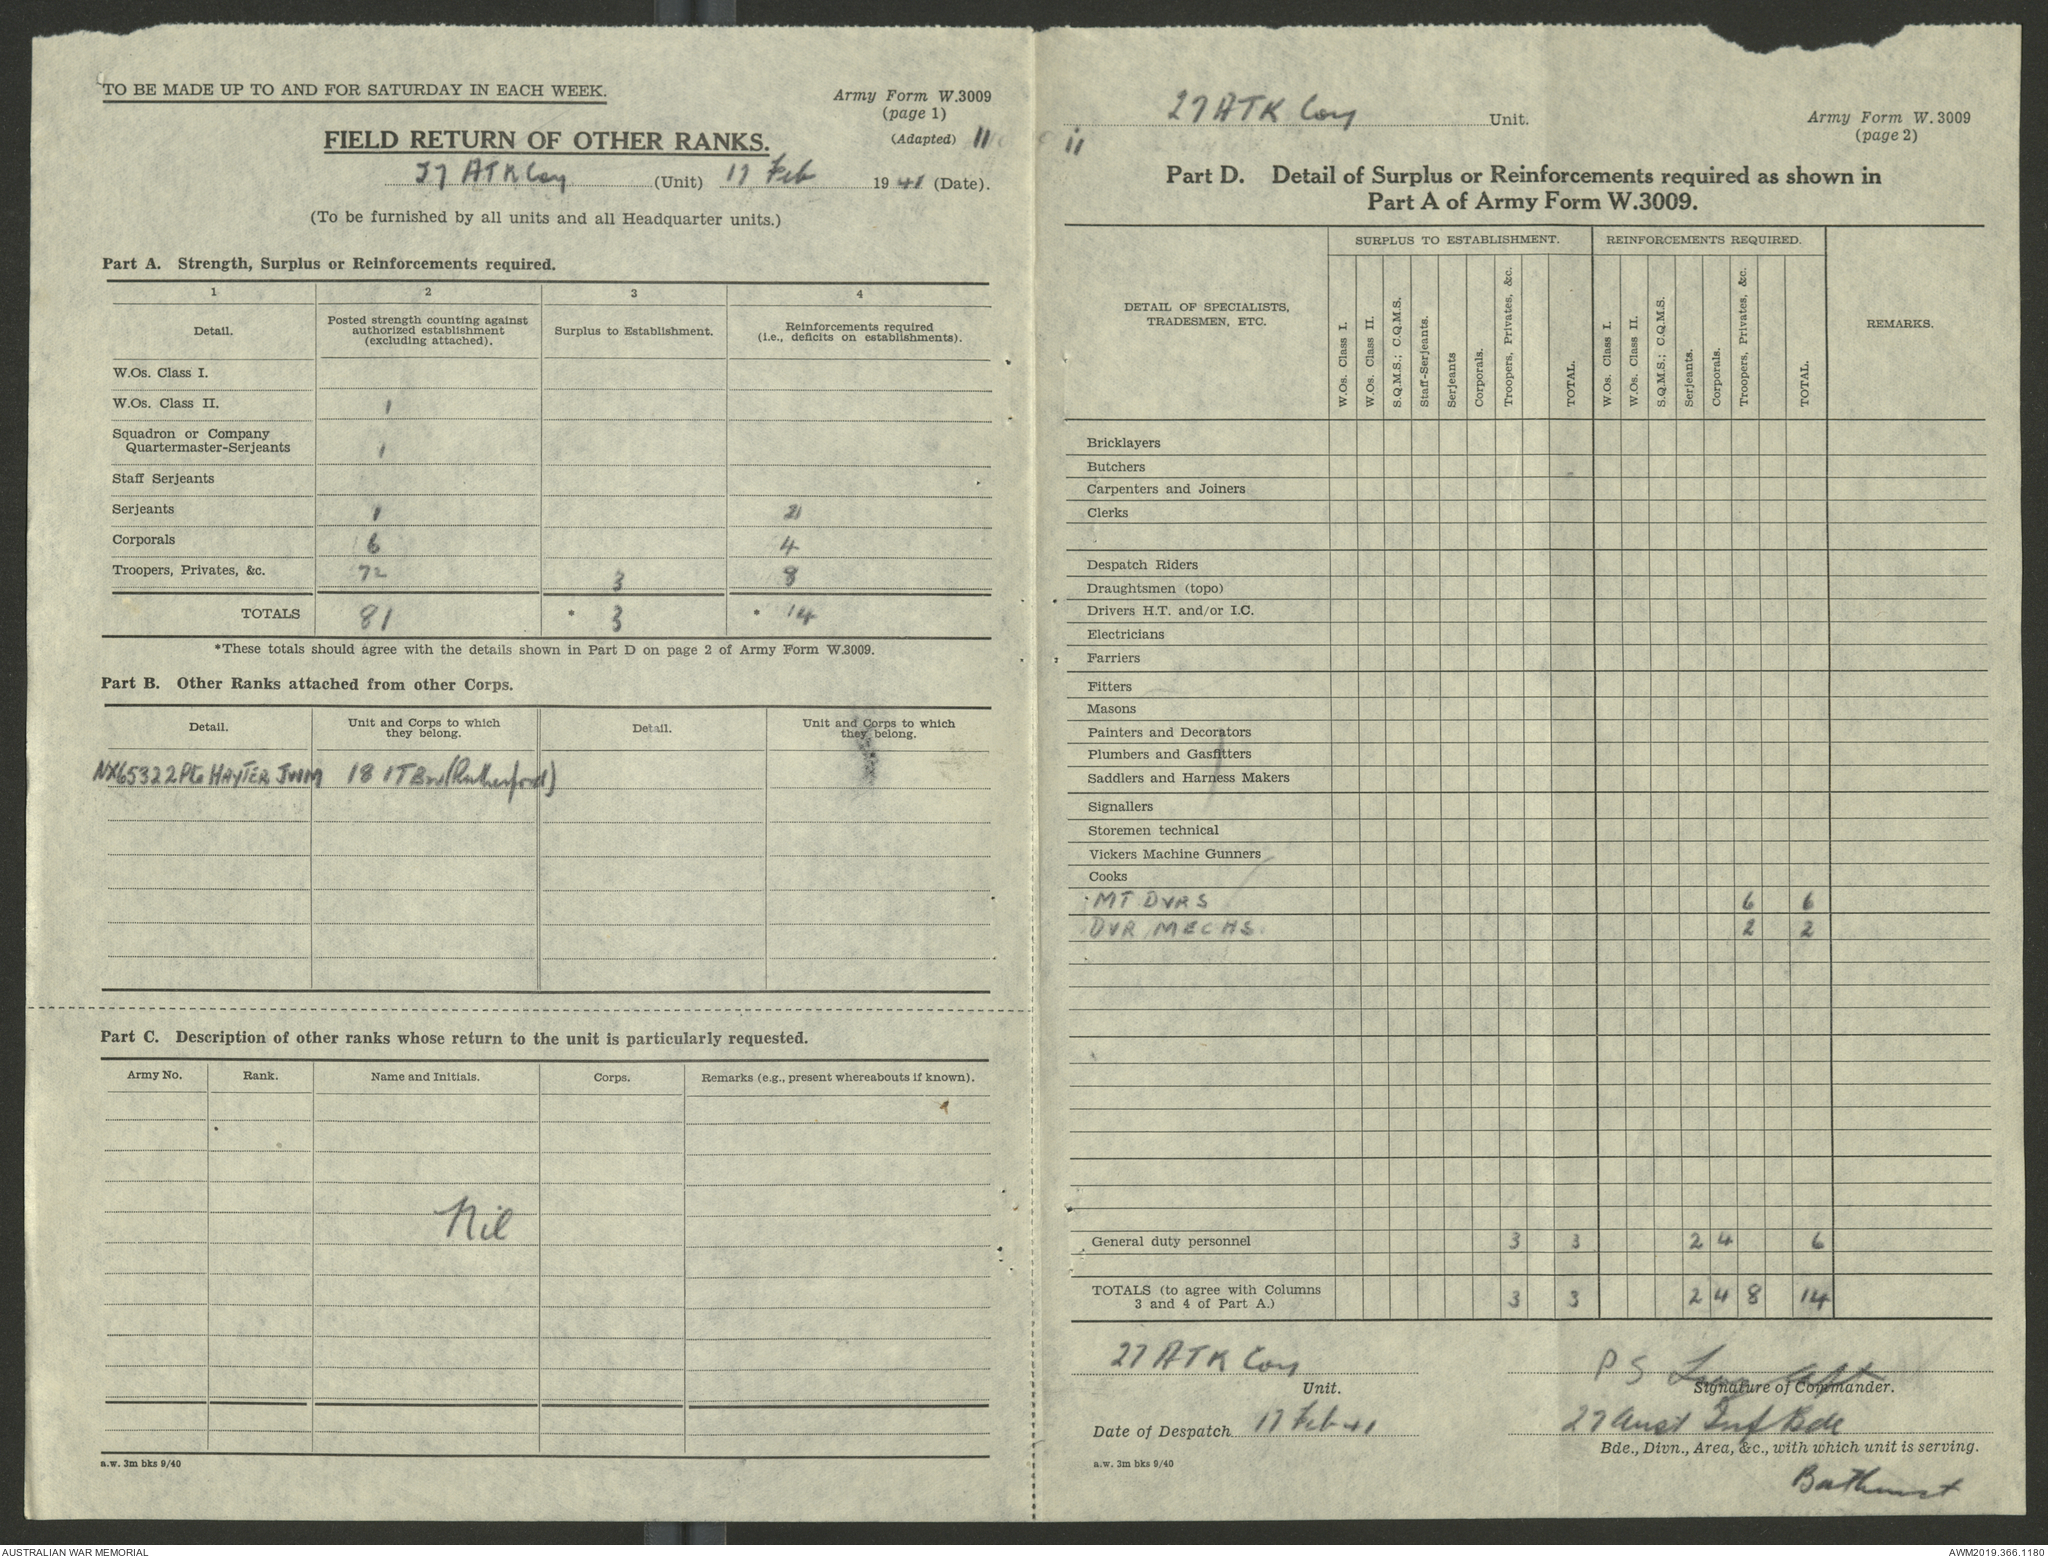 TO BE MADE UP TO AND FOR SATURDAY IN EACH WEEK.
Army Form W.3009
(page 1)
(Adapted) 11
FIELD RETURN OF OTHER RANKS.
27 ATK Coy (Unit) 17 Feb 1941 (Date).
(To be furnished by all units and all Headquarter units.)
Part A. Strength, Surplus or Reinforcements required.
1 2 3 4
Detail. Posted strength counting against authorized establishment (excluding attached). Surplus to Establishment. Reinforcements required (i.e., deficits on establishments).
W.Os. Class I.
W.Os. Class II. 1
Squadron or Company
Quartermaster-Serjeants 1
Staff Serjeants
Serjeants 1 2
Corporals 6 4
Troopers, Privates, &c. 72 3 8
TOTALS 81 * 3 * 14
*These totals should agree with the details shown in Part D on page 2 of Army Form W.3009.
Part B. Other Ranks attached from other Corps.
Detail. Unit and Corps to which they belong. Detail. Unit and Corps to which they belong.
NX65322 Pte HAYTER JWM 18 ITBn (Rutherford)
Part C. Description of other ranks whose return to the unit is particularly requested.
Army No. Rank. Name and Initials. Corps. Remarks (e.g., present whereabouts if known).
Nil
a.w. 3m bks 9/40
27 ATK Coy Unit.
Army Form W. 3009
(page 2)
11
Part D. Detail of Surplus or Reinforcements required as shown in
Part A of Army Form W.3009.
DETAIL OF SPECIALISTS, TRADESMEN, ETC. SURPLUS TO ESTABLISHMENT. REINFORCEMENTS REQUIRED. REMARKS.
W.Os. Class I. W.Os. Class II. S.Q.M.S.; C.Q.M.S. Staff-Serjeants. Serjeants Corporals. Troopers, Privates, &c. TOTAL. W.Os. Class I. W.Os. Class II. S.Q.M.S.; C.Q.M.S. Serjeants. Corporals. Troopers, Privates, &c. TOTAL.
Bricklayers
Butchers
Carpenters and Joiners
Clerks
Despatch Riders
Draughtsmen (topo)
Drivers H.T. and/or I.C.
Electricians
Farriers
Fitters
Masons
Painters and Decorators
Plumbers and Gasfitters
Saddlers and Harness Makers
Signallers
Storemen technical
Vickers Machine Gunners
Cooks
MT DVRS 6 6
DVR MECHS 2 2
General duty personnel 3 3 2 4 6
TOTALS (to agree with Columns
3 and 4 of Part A.) 3 3 2 4 8 14
27 ATK Coy
Unit.
P S
Signature of Commander.
Date of Despatch 17 Feb 41
27 Aust Inf Bde
Bde., Divn., Area, &c., with which unit is serving.
a.w. 3m bks 9/40
Bathurst
AUSTRALIAN WAR MEMORIAL
AWM2019.366.1180